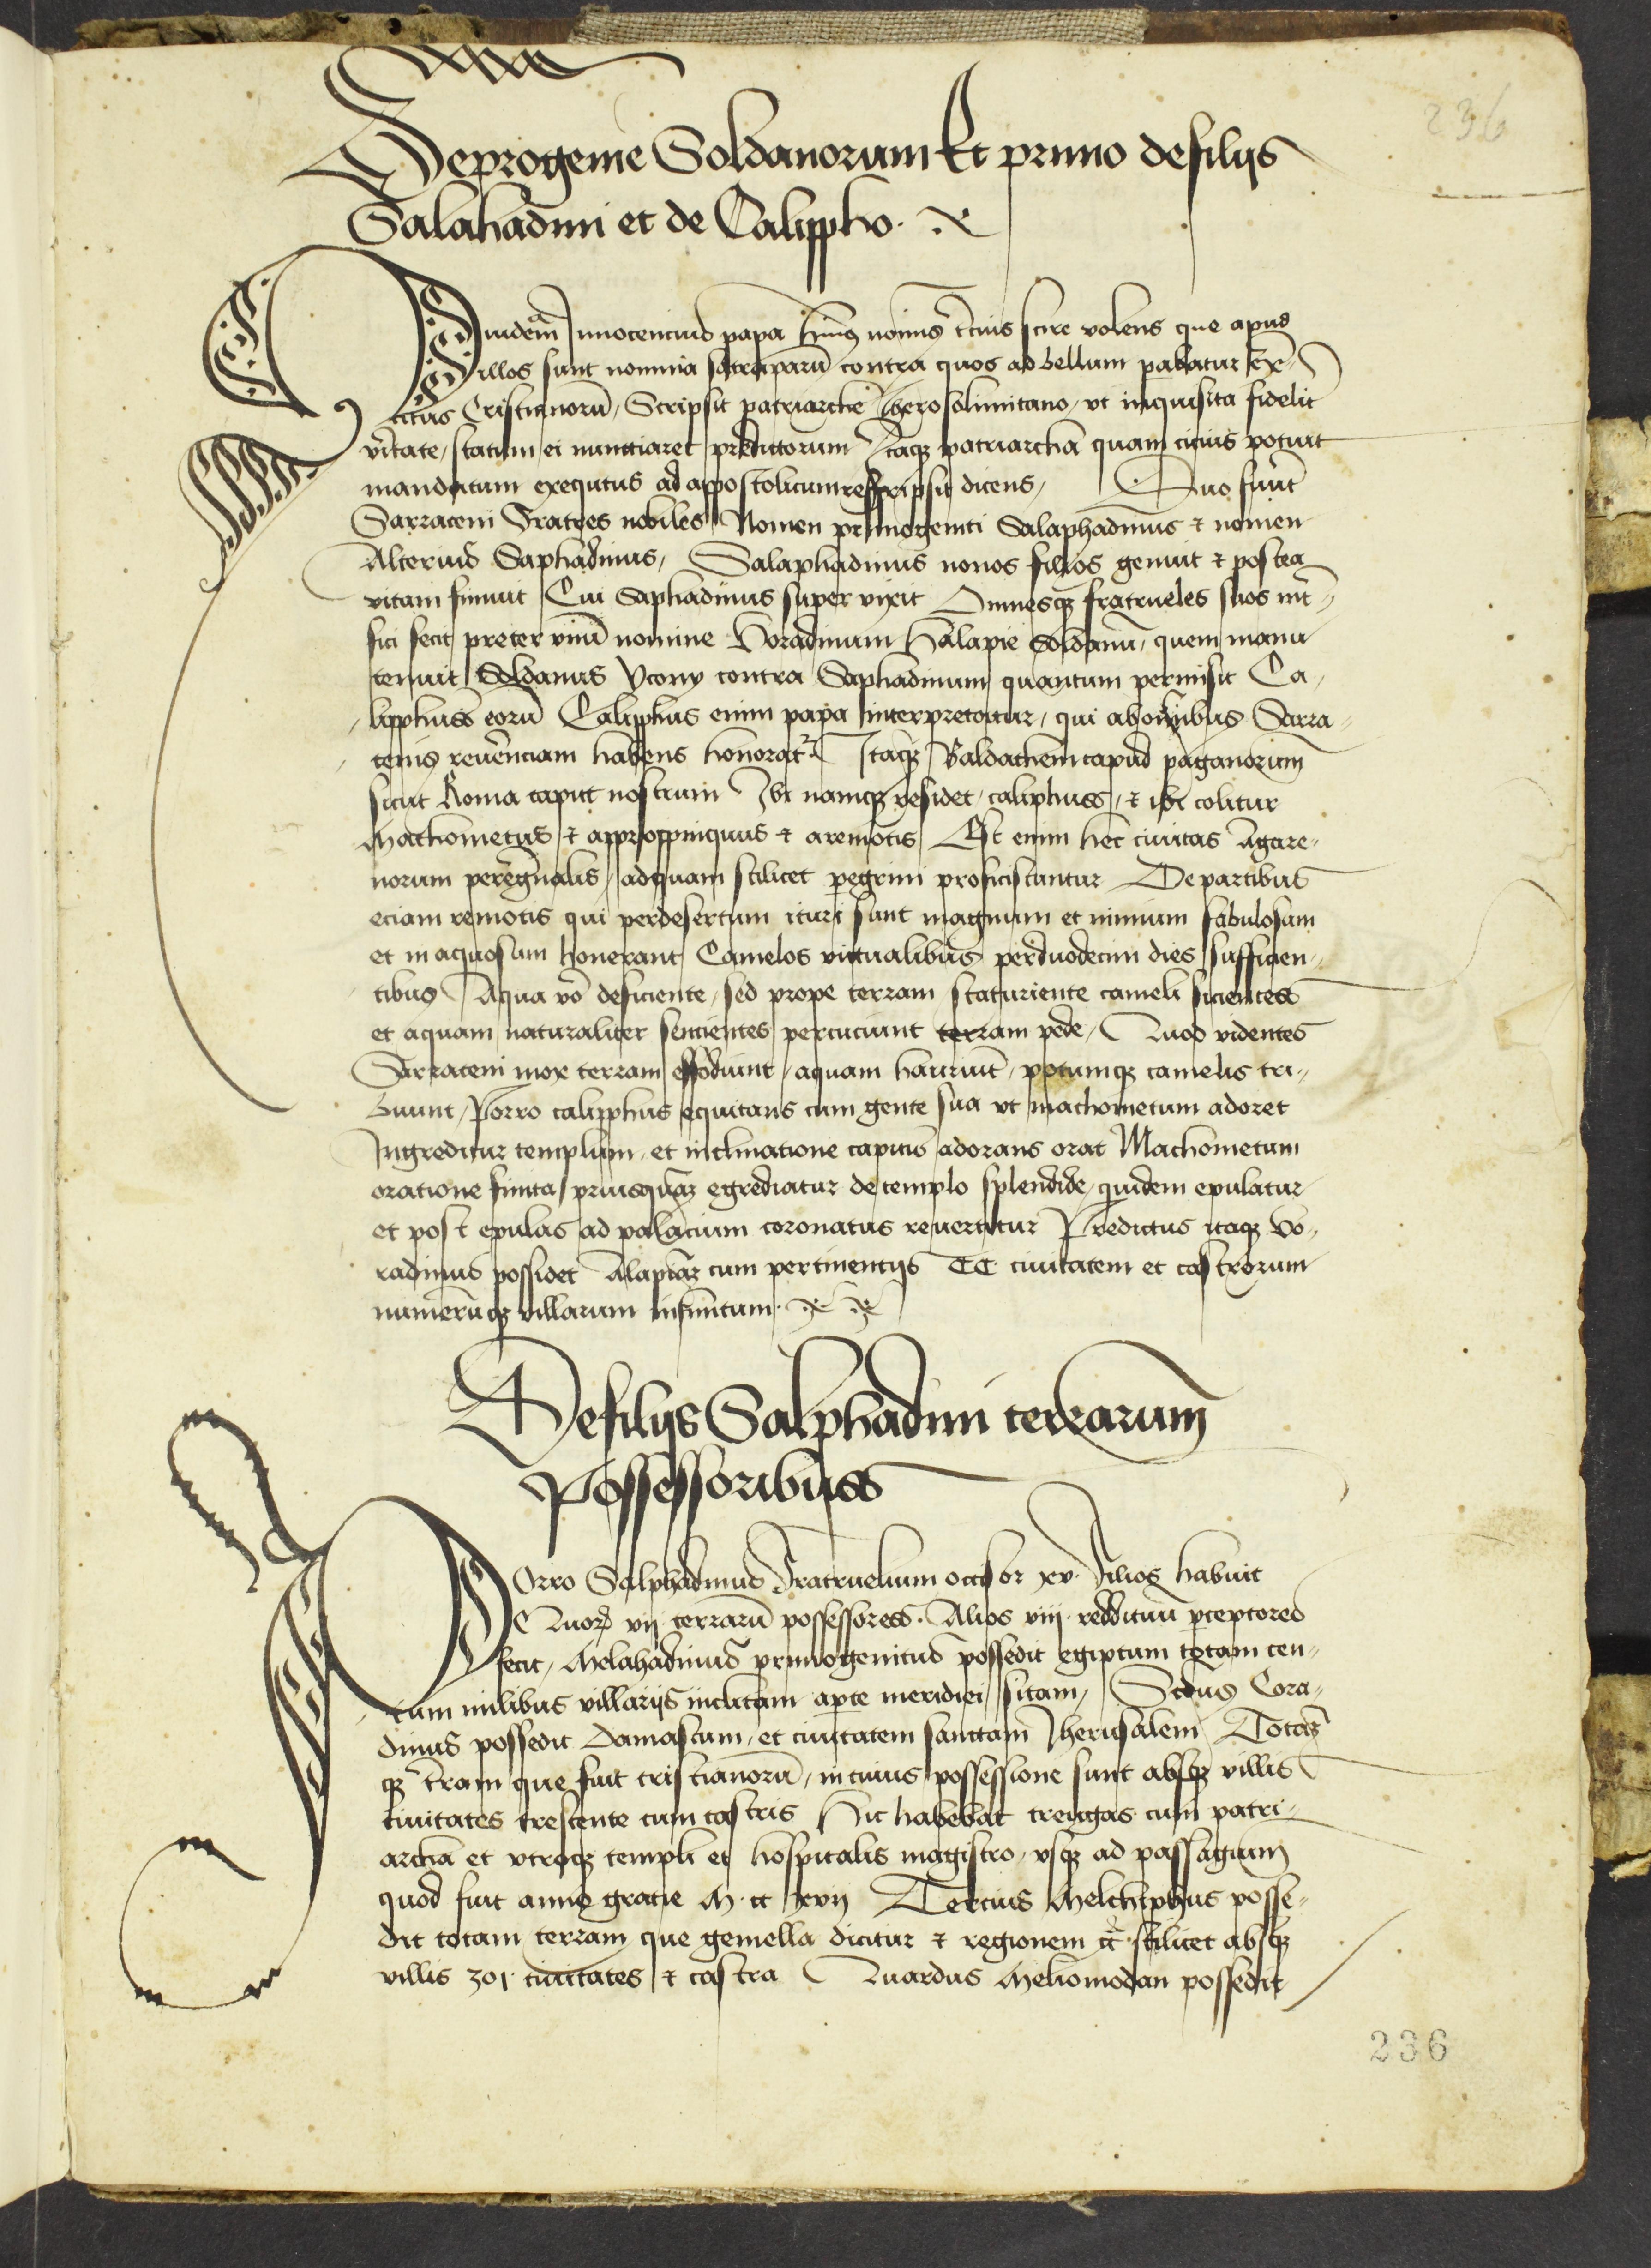 236
Deprogenie Soldanorum Et primo defilijs
Salahadini et de Calippho.
Quidem Innocencius papa huiꝰ nominis t̄cius scire volens que apud
illos sunt nomina satraparū contra quos ad bellum parabatur ex-
ercitus Cristianorū, Scripsit patriarche Iherosolimitano, vt inquisita fidelit
v̄itate, statum ei nunctiaret predictorum Itaqꝫ patriarcha quam cicius potuit
mandatum exequtus ad appostolicum rescripsit dicens, Duo fuūt
Sarraceni Fratres nobiles Nomen primogeniti Salaphadinus & nomen
Alterius Saphadinus, Salaphadinus nonos filios genuit & postea
vitam finiuit Cui Saphadinus super vixit Omnesqꝫ fratrueles suos int̄-
fici fecit preter vnū nomine Noradinum Halapie Soldanū, quem manu
tenuit Soldanus Yconÿ contra Saphadinum quantum permisit Ca-
lipphuss eorū Calipphus enim papa interpretatur, qui ab omnibus Sarra-
cenis reuerenciam habens honorat᷑ Itaqꝫ Baldachem capud paganorum
sicut Roma caput nostrum Ibi namqꝫ residet, caliphuss, & ibi colitur
Machometus & appropinquus & aremotis Est enim hec ciuitas Agare-
norum peregrinalis, adquam scilicet pegrini proficiscuntur Departibus
eciam remotis qui perdesertum ituri sunt magnum et nimium sabulosum
et inaquosum honerant Camelos victualibus perduodecim dies sufficien-
tibus Aqua vō deficiente, sed prope terram scaturiente cameli sicientess
et aquam naturaliter sencientes percuciunt terram pede, Quod videntes
Sarraceni mox terram effodiunt, aquam hauriūt, potumqꝫ camelis tri-
buunt, Porro calipphus equitans cum gente sua vt machometum adoret
Ingreditur templum, et inclinatione capitis adorans orat Machometum
oratione finita, priusquaꝫ egrediatur detemplo splendide, quidem epulatur
et post epulas ad palacium coronatus reuertitur Predictus itaqꝫ No-
radinus possidet Alapiaꝫ cum pertinentijs CC ciuitatem et castrorum
numerūqꝫ villarum infinitum.
Defilijs Salphadini terrarum
Possessoribuss
POrro Salphadinus Fratruelium occisor xv. filios habuit
Quorꝫ vij terrarū possessoress. Alios viij. reddituū p̄ceptores
fecit, Melahadinus primogenitus possedit egiptum totam cen-
tum milibus villarijs inclitam ap̄te meridiei sitam, Scdus Cora-
dinus possedit Damascum, et ciuitatem sanctam Iherusalem Totaꝫ
qꝫ t̄ram que fuit cristianorū, in cuius possessione sunt absqꝫ villis
ciuitates trescente cum castris Hic habebat treugas cum patri-
archa et vtroqꝫ templi et hospitalis magistro, vsqꝫ ad passagium
quod fuit anno gratie M cc xvij Tercius Melchiphus posse-
dit totam terram que gemella dicitur & regionem scilicet absqꝫ
villis 301 ciuitates & castra Quardus Meliomodan possedit
236